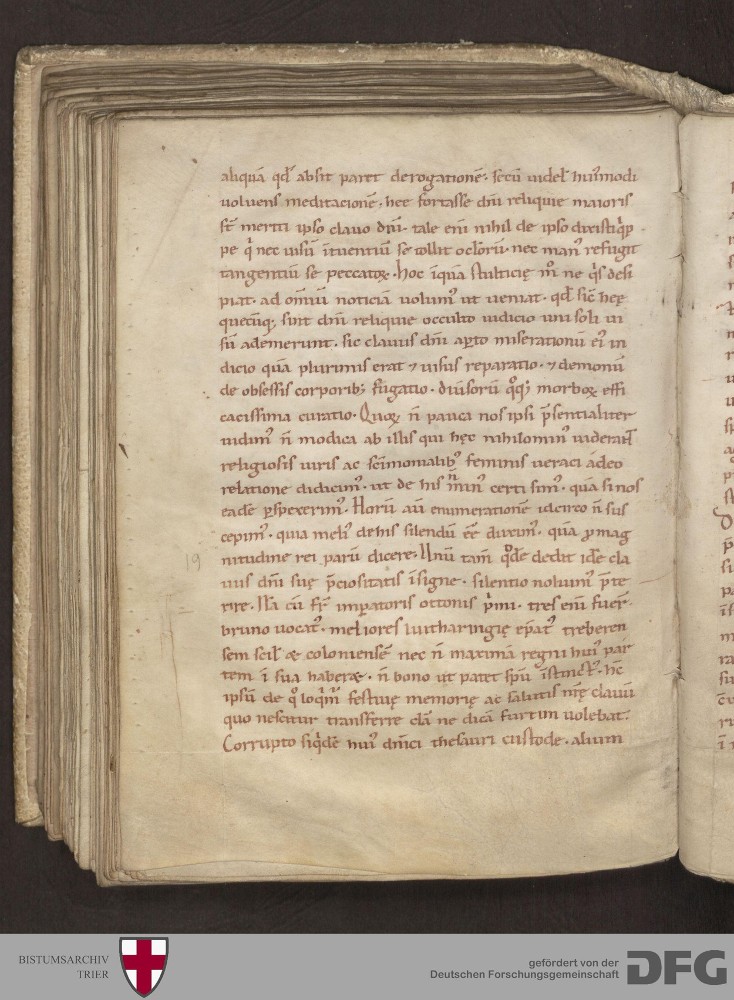 aliquā qđ absit paret derogationē. secū uideł hui᷒modi
voluens meditacionē. hec fortasse dn̄i reliquie maioris
st̄ meriti ipso clauo dn̄i. tale eni nihil de ipso dixisti
pe q nec uisū ītuentiū se tollit oclorū. nec man᷒ refugit
tangentiū se peccatoꝝ. hoc īquā stulticię ne q̄s desi
piat. ad om̄iū noticiā volum᷒ ut ueniat. qđ sic hęę
quecūq; sint dn̄i reliquie occulto iudicio uni soli ui
sū ademerunt. sic clauus dn̄i aꝑto miserationū ei᷒ in
dicio quā plurimis erat ⁊ uisus reparatio. ⁊ demonū
de obsessis corporib; fugatio. diūsorū qq; morboꝝ effi
cacissima curatio. Quoꝝ n̄ pauca nos ipsi p̄sentialiter
uidim᷒ n̄ modica ab illis qui hęc nihilomin᷒ uiderant
religiosis uiris ac scīmonialib᷒ feminis ueraci adeo
relatione didicim᷒. ut de his min᷒ certi sim᷒. quā si nos
eadē ꝑspexerim᷒. Horū aū enumerationē idcirco n̄ sus
cepim᷒. quia meli᷒ de his silendū eē duxim᷒. quā ꝓ mag
nitudine rei parū dicere. Unū tam̄ qđ dedit idē cla
uus dn̄i suę p̄ciositatis īsigne. silentio nolum᷒ p̄te
rire. Nā cū fr̄ imperatoris ottonis p̄mi. tres eni fuer̄.
bruno uocat᷒. meliores luitharingię ep̄at᷒ treberen
sem scił ⁊ coloniensē nec n̄ maximā regni hui᷒ par
tem ī sua haberet. n̄ bono ut patet sp̄u īstinct᷒. hc̄
ipsū de q loqm̄ festiuę memorię ac salutis nr̄ę clauū
quo nescitur transferre clā ne dicā furtim uolebat.
Corrupto siqdē hui᷒ dn̄ici thesauri custode. alium
19
BISTUMSARCHIV
TRIER
gefördert von der
Deutschen Forschungsgemeinschaft
DFG